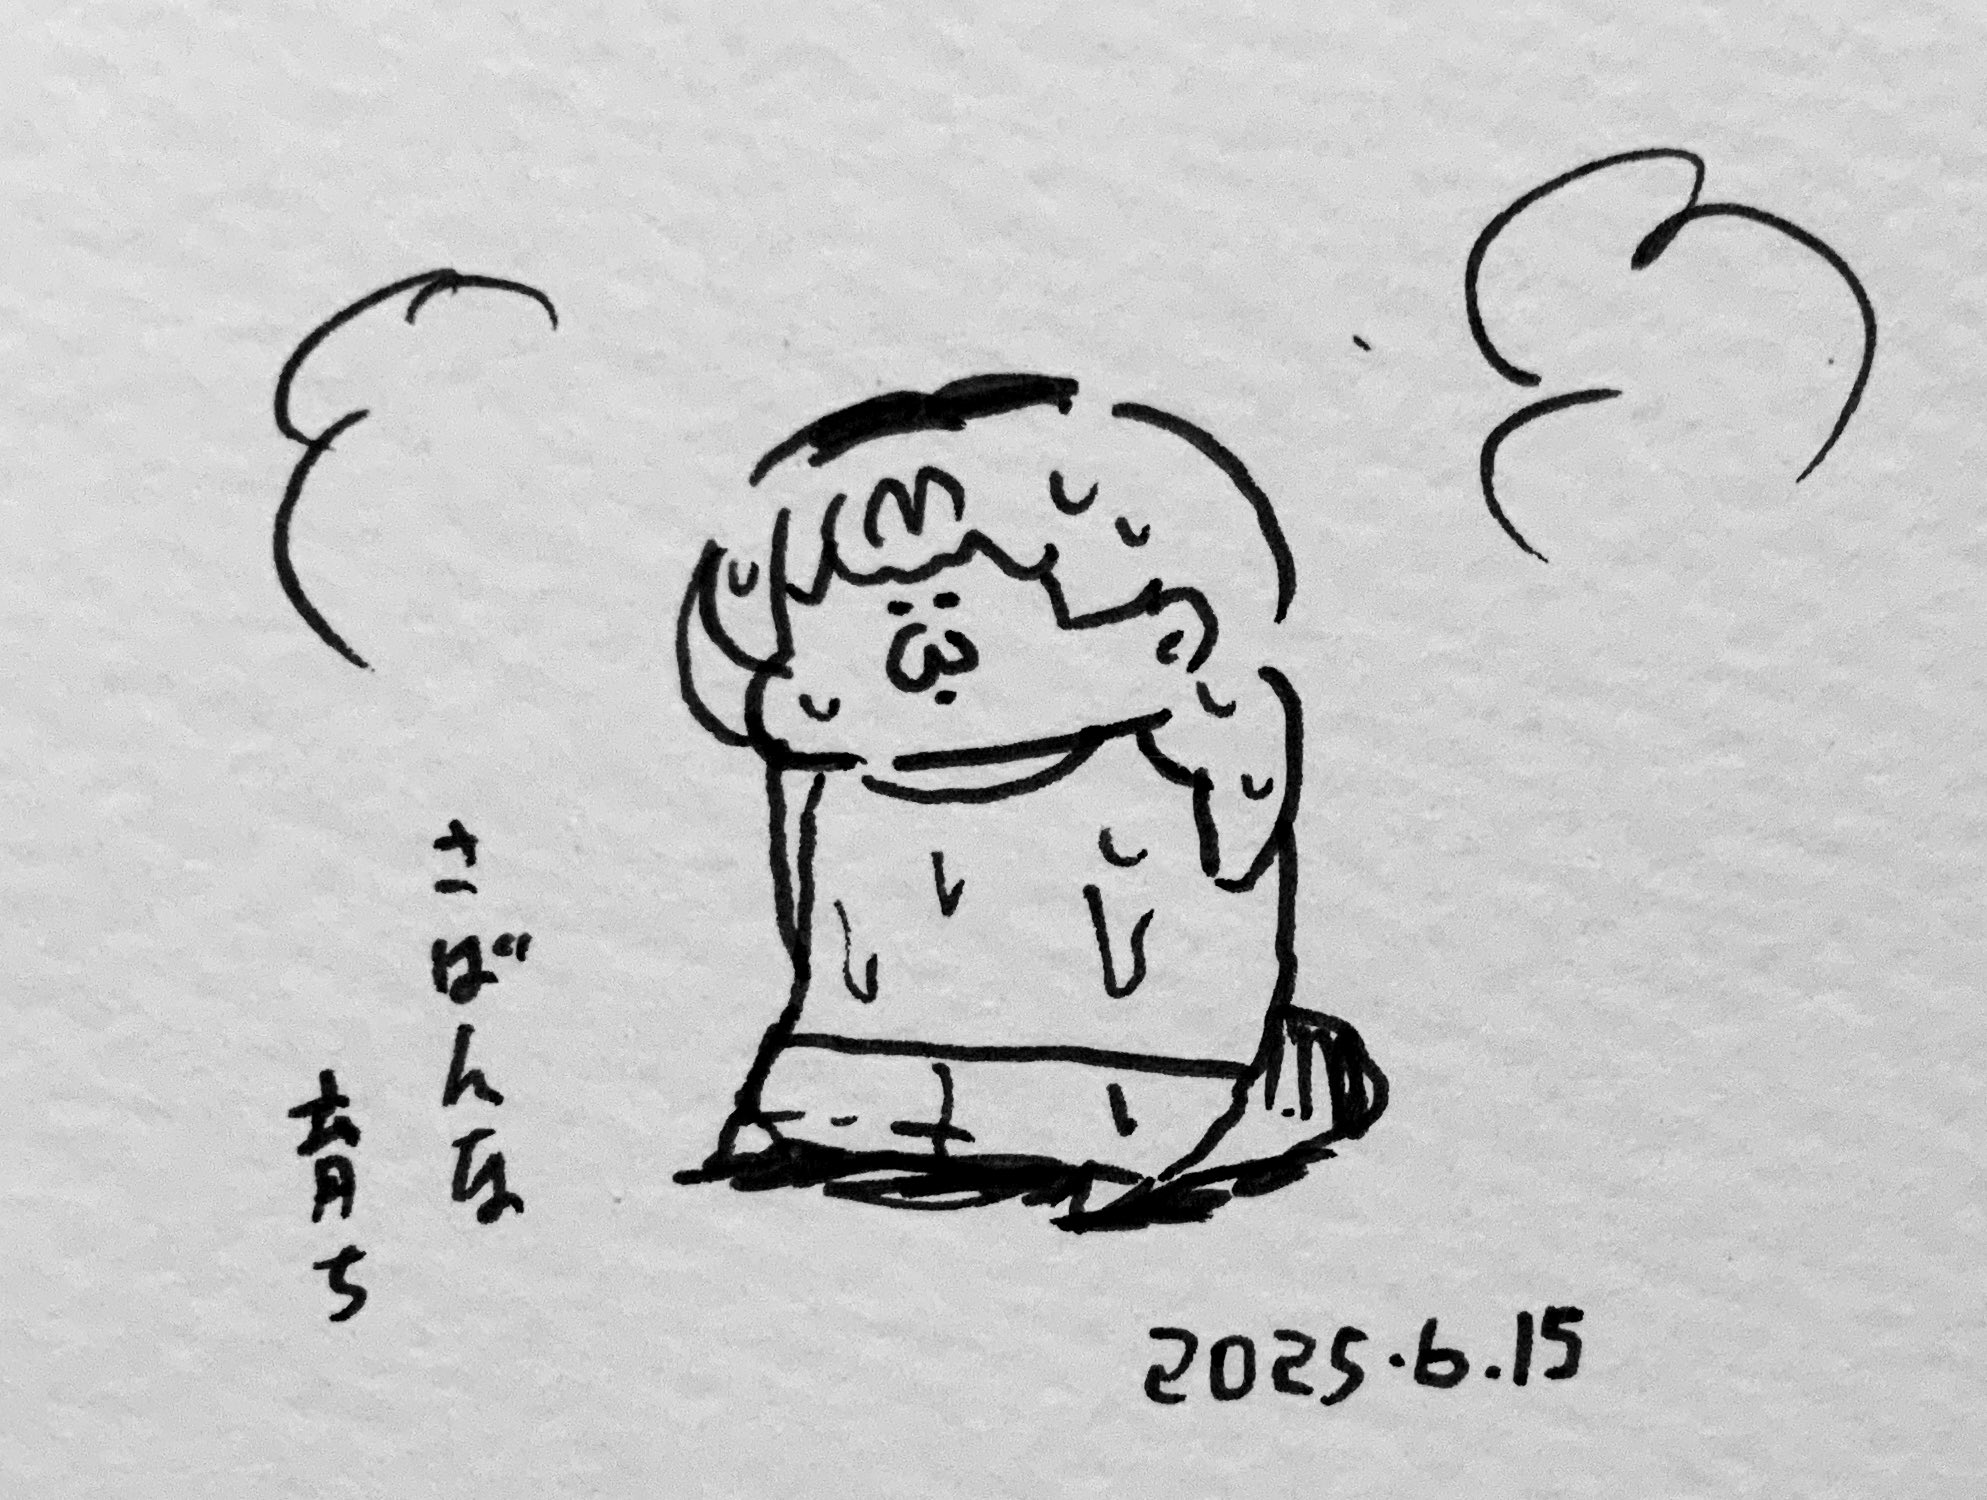 さばんな
育ち
2025.6.15